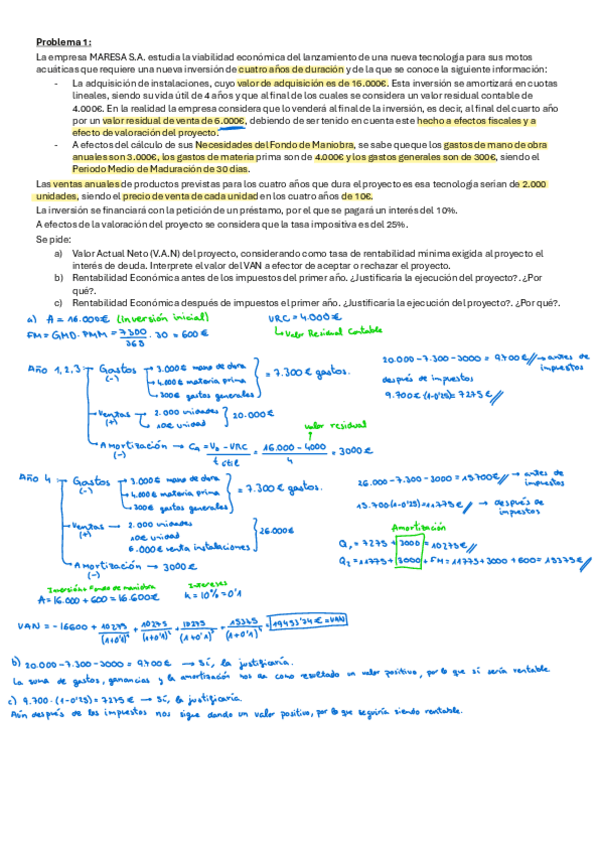 Problema 1:
La empresa MARESA S.A. estudia la viabilidad económica del lanzamiento de una nueva tecnología para sus motos
acuáticas que requiere una nueva inversión de cuatro años de duración y de la que se conoce la siguiente información:
- La adquisición de instalaciones, cuyo valor de adquisición es de 16.000€. Esta inversión se amortizará en cuotas
lineales, siendo su vida útil de 4 años y que al final de los cuales se considera un valor residual contable de
4.000€. En la realidad la empresa considera que lo venderá al final de la inversión, es decir, al final del cuarto año
por un valor residual de venta de 6.000€, debiendo de ser tenido en cuenta este hecho a efectos fiscales y a
efecto de valoración del proyecto.
- A efectos del cálculo de sus Necesidades del Fondo de Maniobra, se sabe que que los gastos de mano de obra
anuales son 3.000€, los gastos de materia prima son de 4.000€ y los gastos generales son de 300€, siendo el
Periodo Medio de Maduración de 30 dias.
Las ventas anuales de productos previstas para los cuatro años que dura el proyecto es esa tecnología serian de 2.000
unidades, siendo el precio de venta de cada unidad en los cuatro años de 10€.
La inversión se financiará con la petición de un préstamo, por el que se pagará un interés del 10%.
A efectos de la valoración del proyecto se considera que la tasa impositiva es del 25%.
Se pide:
a) Valor Actual Neto (V.A.N) del proyecto, considerando como tasa de rentabilidad mínima exigida al proyecto el
interés de deuda. Interprete el valor del VAN a efector de aceptar o rechazar el proyecto.
b) Rentabilidad Económica antes de los impuestos del primer año. ¿Justificaria la ejecución del proyecto?. ¿Por
qué?.
c) Rentabilidad Económica después de impuestos el primer año. ¿Justificaria la ejecución del proyecto?. ¿Por qué?.
a) A = 16.000€ (Inversión inicial) VRC = 4.000€
FM = GMD · PMM = 7300/365 · 30 = 600€ ↳ Valor Residual Contable
Año 1,2,3 Gastos (-) → 3.000€ mano de obra
→ 4.000€ materia prima = 7.300€ gastos.
→ 300€ gastos generales
20.000 - 7.300 - 3000 = 9.700€ → antes de impuestos
después de impuestos
9.700€ (1-0'25) = 7275€
→ Ventas (+) → 2.000 unidades 20.000€
→ 10€ unidad
valor residual
→ Amortización (-) → Ca = Va - VRC / t útil = 16.000 - 4.000 / 4 = 3000€
Año 4 Gastos (-) → 3.000€ mano de obra
→ 4.000€ materia prima = 7.300€ gastos.
→ 300€ gastos generales
26.000 - 7.300 - 3000 = 15.700€ → antes de impuestos
15.700 (1-0'25) = 11775€ → después de impuestos
→ Ventas (+) → 2.000 unidades
10€ unidad 26.000€
6.000€ venta instalaciones
→ Amortización (-) → 3000€
Amortización
Q1 = 7275 + 3000 = 10275€
Q2 = 11775 + 3000 + FM = 11775 + 3000 + 600 = 15375€
Inversión + Fondo de maniobra Intereses
A = 16.000 + 600 = 16.600€ k = 10% = 0'1
VAN = -16600 + 10275/(1+0'1)¹ + 10275/(1+0'1)² + 10275/(1+0'1)³ + 15375/(1+0'1)⁴ = 19453'74€ = VAN
b) 20.000 - 7.300 - 3000 = 9.700€ → Sí, la justificaría.
La suma de gastos, ganancias y la amortización nos da como resultado un valor positivo, por lo que sí sería rentable
c) 9.700 · (1-0'25) = 7275€ → Sí, la justificaría
Aún después de los impuestos nos sigue dando un valor positivo, por lo que seguiría siendo rentable.